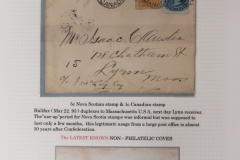 Mr Isaac
Chatham St
Lynn
Mass
5c Nova Scotian stamp & 1c Canadian stamp
Halifax (Mar 22, 90) duplexes to Massachusetts U.S.A. next day Lynn receiver.
The "use-up" period for Nova Scotia stamps was informal but was supposed to
last only a few months, this legitimate usage from a large post office is almost
20 years after Confederation.
The LATEST KNOWN NON - PHILATELIC COVER